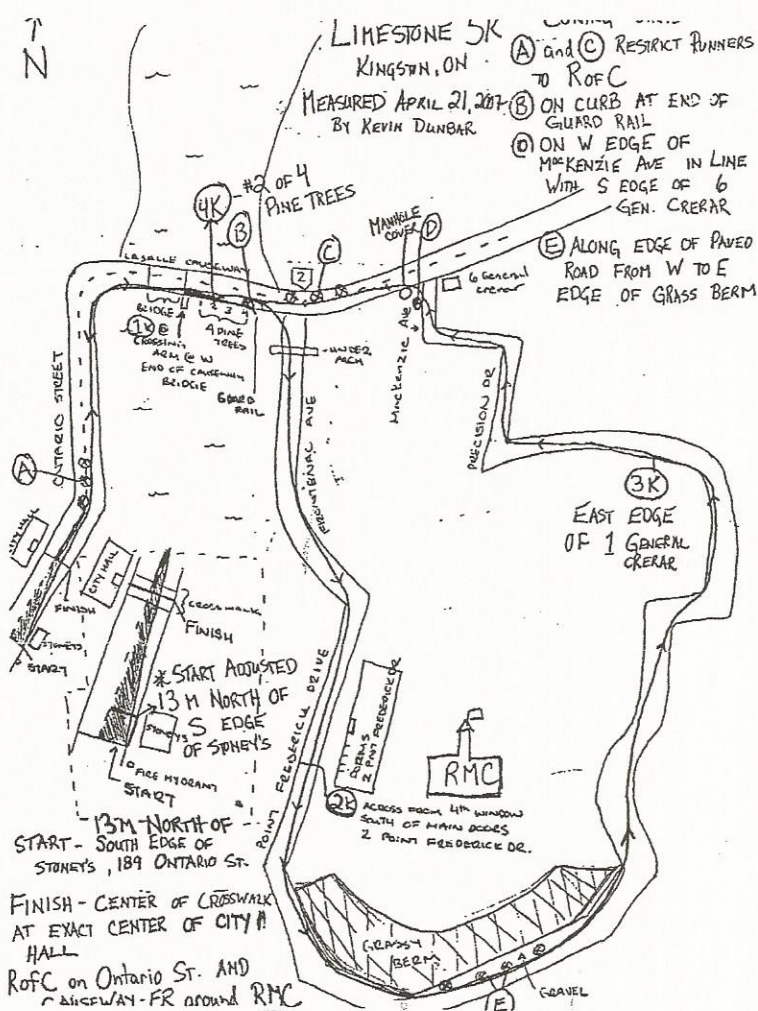 N
LIMESTONE 5K
KINGSTON, ON
MEASURED APRIL 21, 2007
BY KEVIN DUNBAR
A and C RESTRICT RUNNERS
TO RofC
B ON CURB AT END OF
GUARD RAIL
D ON W EDGE OF
MacKENZIE AVE IN LINE
WITH S EDGE OF 6
GEN. CRERAR
E ALONG EDGE OF PAVED
ROAD FROM W TO E
EDGE OF GRASS BERM
4K
#2 OF 4
PINE TREES
B
C
MANHOLE
COVER
D
LASALLE CAUSEWAY
2
6 General
Crerar
BRIDGE
1K @
CROSSING
ARM @ W
END OF CAUSEWAY
BRIDGE
2 3 4
4 PINE
TREES
GUARD
RAIL
UNDER
ARCH
MacKENZIE AVE
ONTARIO STREET
FRONTENAC AVE
PRECISION DR
A
3K
EAST EDGE
OF 1 GENERAL
CRERAR
CITY HALL
FINISH
STONEYS
START
CITY HALL
CROSSWALK
FINISH
* START ADJUSTED
13 M NORTH OF
S EDGE
OF STONEY'S
STONEYS
FIRE HYDRANT
START
POINT FREDERICK DRIVE
DORMS
2 POINT FREDERICK DR
RMC
2K ACROSS FROM 4th WINDOW
SOUTH OF MAIN DOORS
2 POINT FREDERICK DR.
13M NORTH OF
START - SOUTH EDGE OF
STONEY'S, 189 ONTARIO ST.
FINISH - CENTER OF CROSSWALK
AT EXACT CENTER OF CITY
HALL
RofC on Ontario St. AND
CAUSEWAY - FR around RMC
GRASSY
BERM
E
GRAVEL